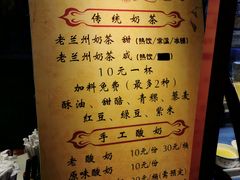 传统奶茶
老兰州奶茶 甜(热饮/常温/冰镇)
老兰州奶茶 咸(热饮/
10元一杯
加料免费(最多2种)
酥油、甜醅、青稞、荞麦
红豆、绿豆、紫米
手工酸奶
老酸奶 10元/份 30元/
原味酸奶 10元/份